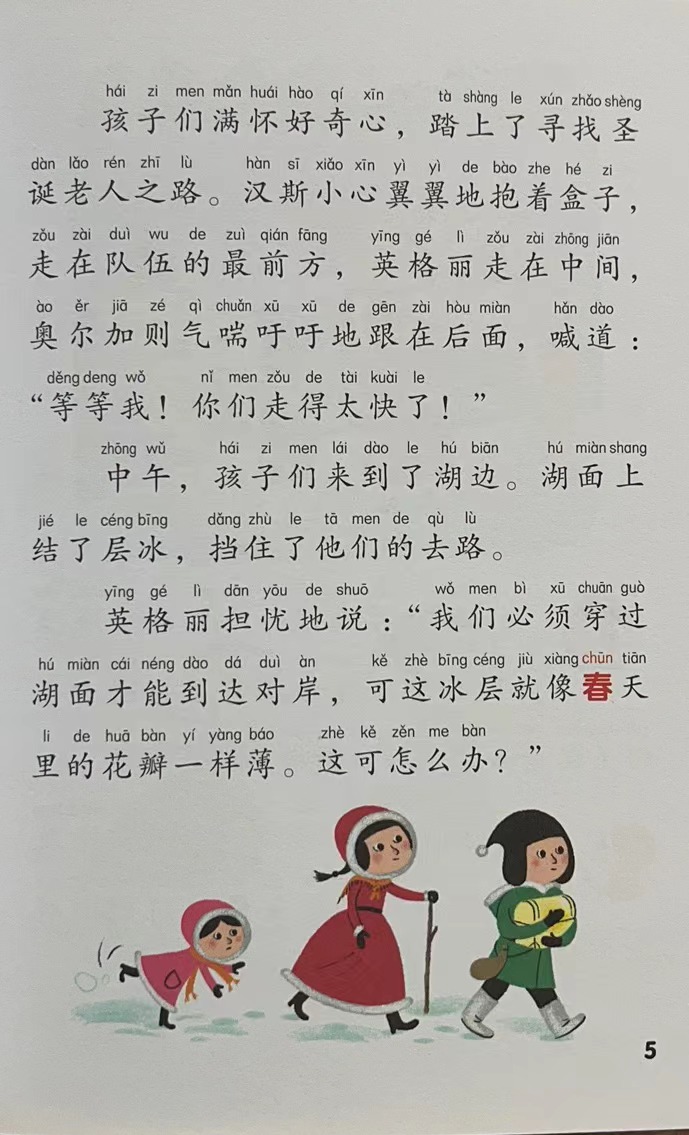 hái zi men mǎn huái hào qí xīn tà shàng le xún zhǎo shèng
孩子们满怀好奇心，踏上了寻找圣
dàn lǎo rén zhī lù hàn sī xiǎo xīn yì yì de bào zhe hé zi
诞老人之路。汉斯小心翼翼地抱着盒子，
zǒu zài duì wu de zuì qián fāng yīng gé lì zǒu zài zhōng jiān
走在队伍的最前方，英格丽走在中间，
ào ěr jiā zé qì chuǎn xū xū de gēn zài hòu miàn hǎn dào
奥尔加则气喘吁吁地跟在后面，喊道：
děng deng wǒ nǐ men zǒu de tài kuài le
“等等我！你们走得太快了！”
zhōng wǔ hái zi men lái dào le hú biān hú miàn shang
中午，孩子们来到了湖边。湖面上
jié le céng bīng dǎng zhù le tā men de qù lù
结了层冰，挡住了他们的去路。
yīng gé lì dān yōu de shuō wǒ men bì xū chuān guò
英格丽担忧地说：“我们必须穿过
hú miàn cái néng dào dá duì àn kě zhè bīng céng jiù xiàng chūn tiān
湖面才能到达对岸，可这冰层就像春天
li de huā bàn yí yàng báo zhè kě zěn me bàn
里的花瓣一样薄。这可怎么办？”
5